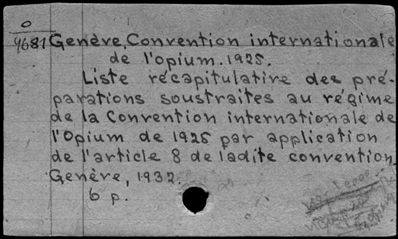 O
9681 Genève, Convention internationale
de l'opium. 1925.
Liste récapitulative des pré-
parations soustraites au régime
de la Convention internationale de
l'Opium de 1925 par application
de l'article 8 de ladite convention.
Genève, 1932.
6 p.